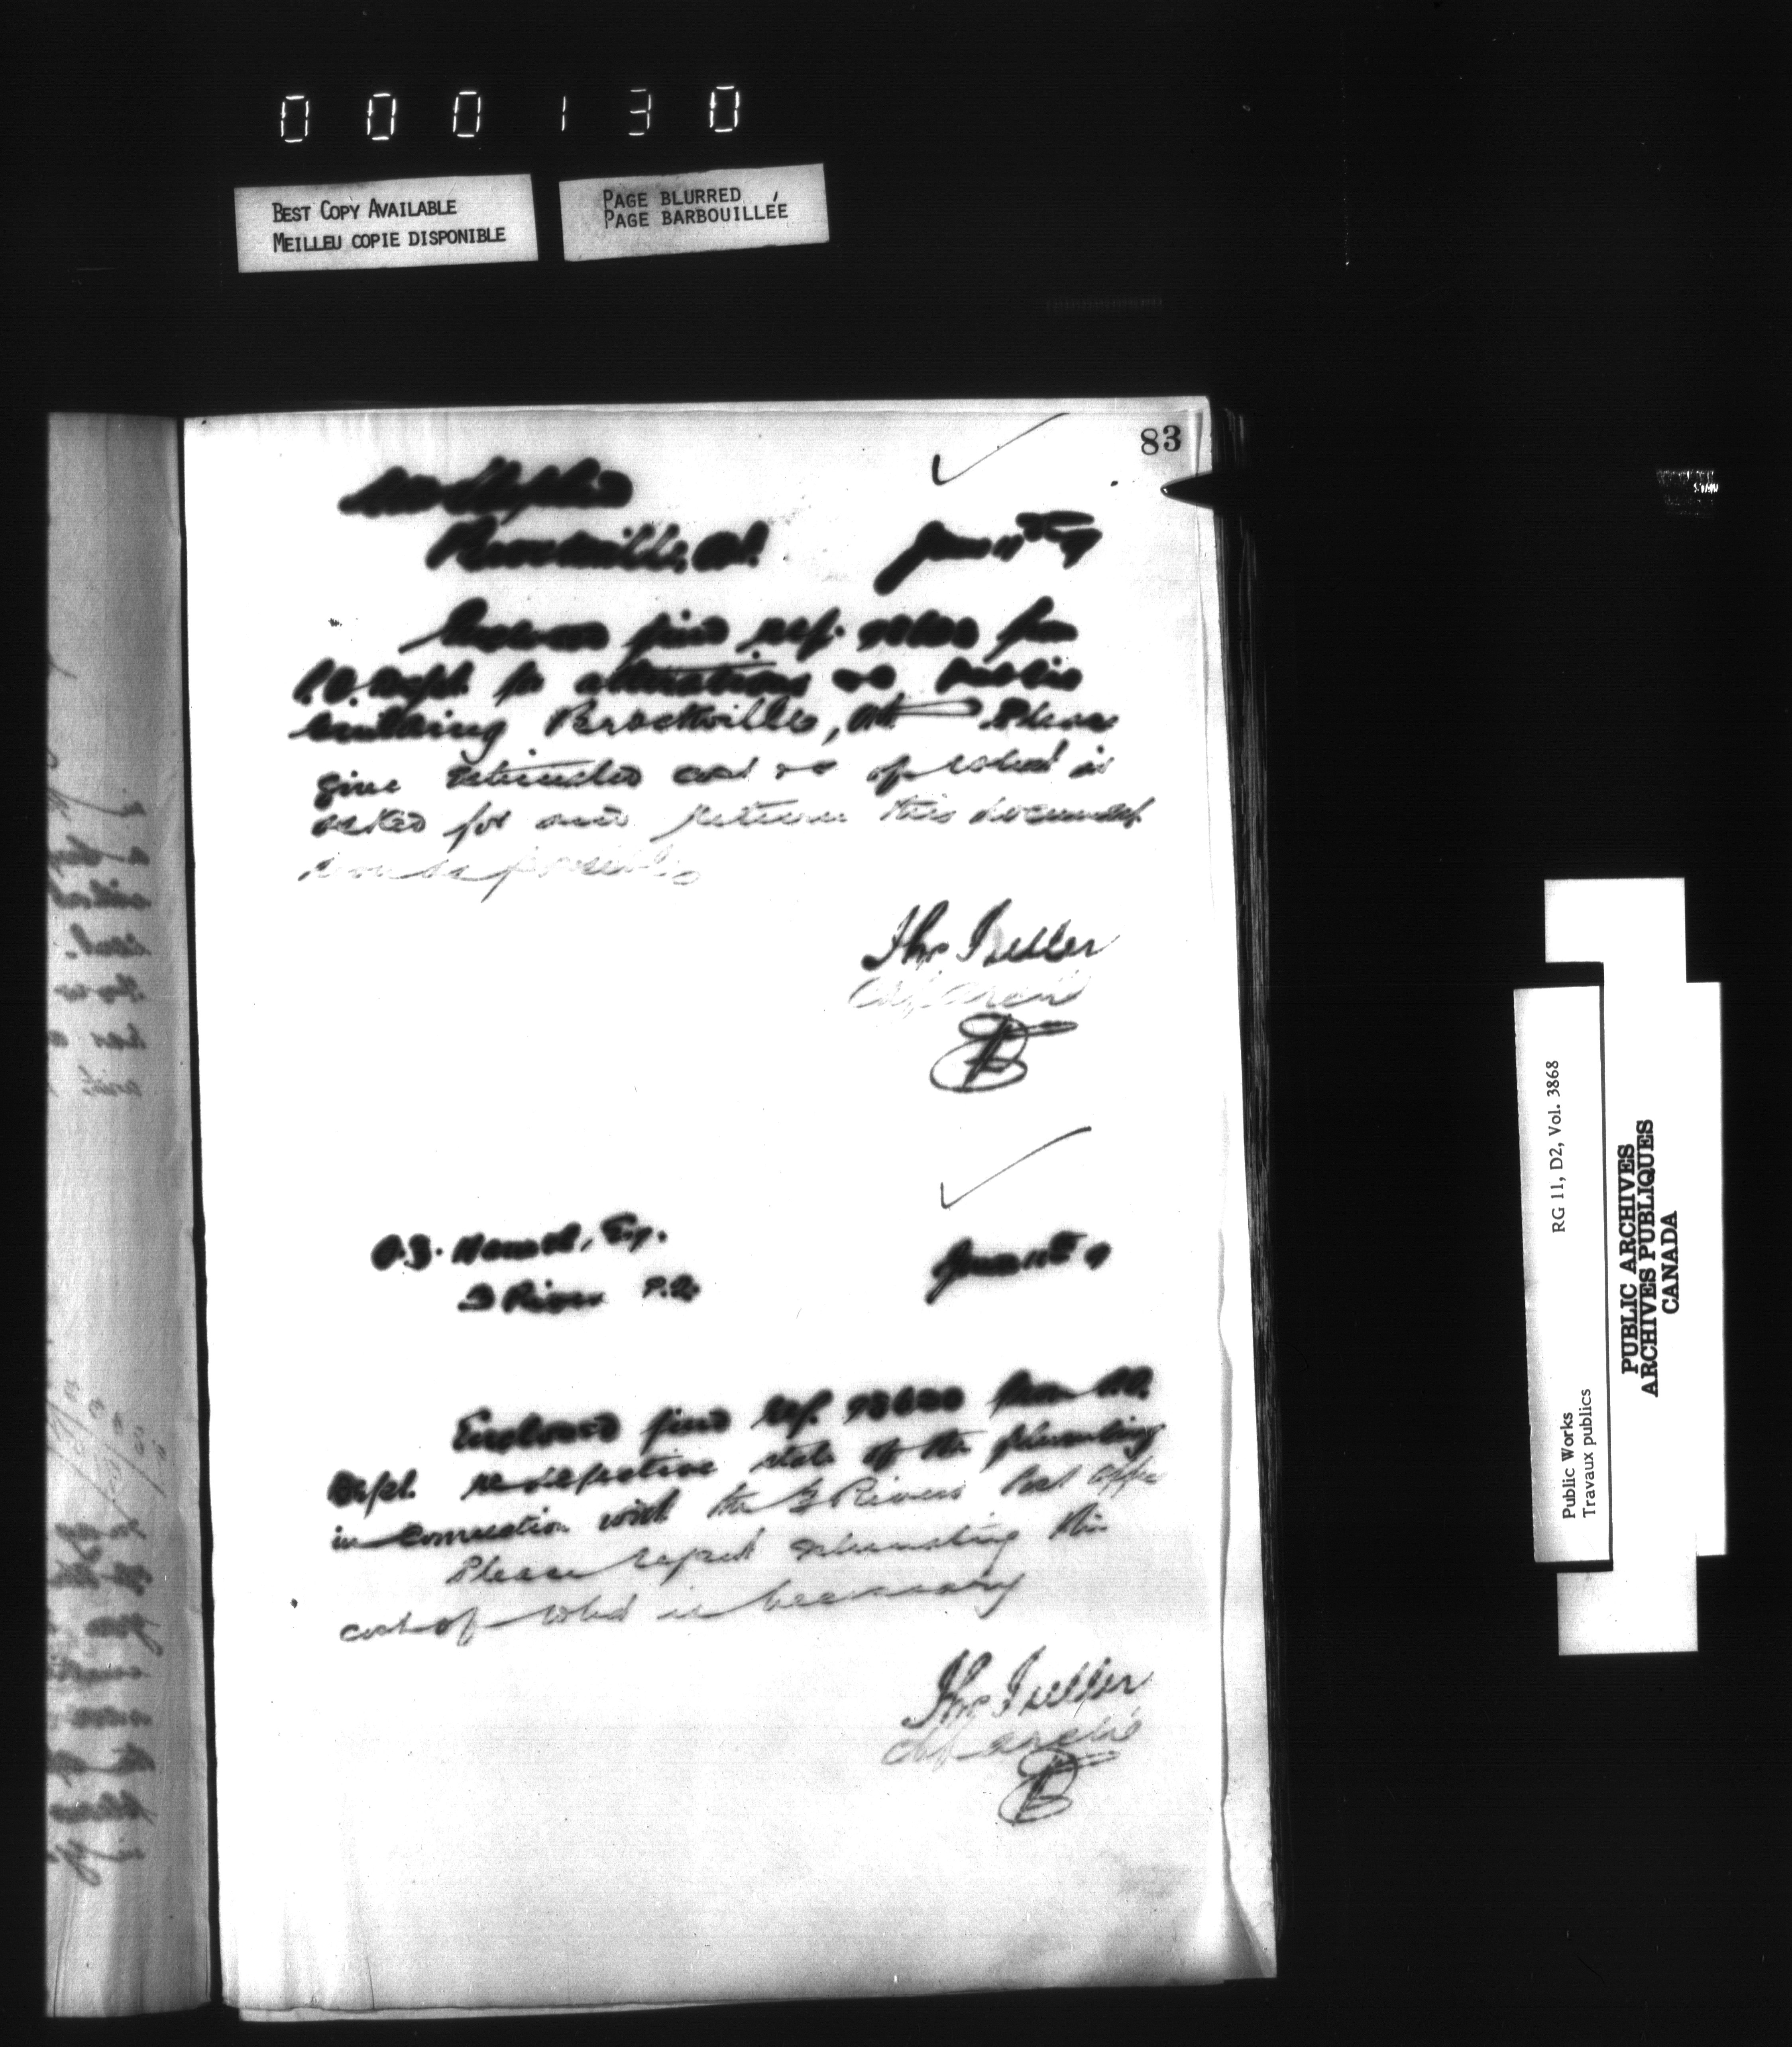 000130
BEST COPY AVAILABLE
MEILLEU COPIE DISPONIBLE
PAGE BLURRED
PAGE BARBOUILLÉE
83
Brockville, Ont. June 11th 
Enclosed find ref. from
P.O. Dept. for alterations to public
building Brockville, Ont Please
give estimated cost of what is
asked for and return this document
soon as possible
Thos Fuller
Chf Arch
Esq.
3 Rivers P.Q. June 11th 9
Enclosed find ref. 78620 from P.O.
Dept. re defective state of the plumbing
in connection with the 3 Rivers Post Office
Please report estimating the
cost of what is necessary
Thos Fuller
Chf Arch
Public Works RG 11, D2, Vol. 3868
Travaux publics
PUBLIC ARCHIVES
ARCHIVES PUBLIQUES
CANADA